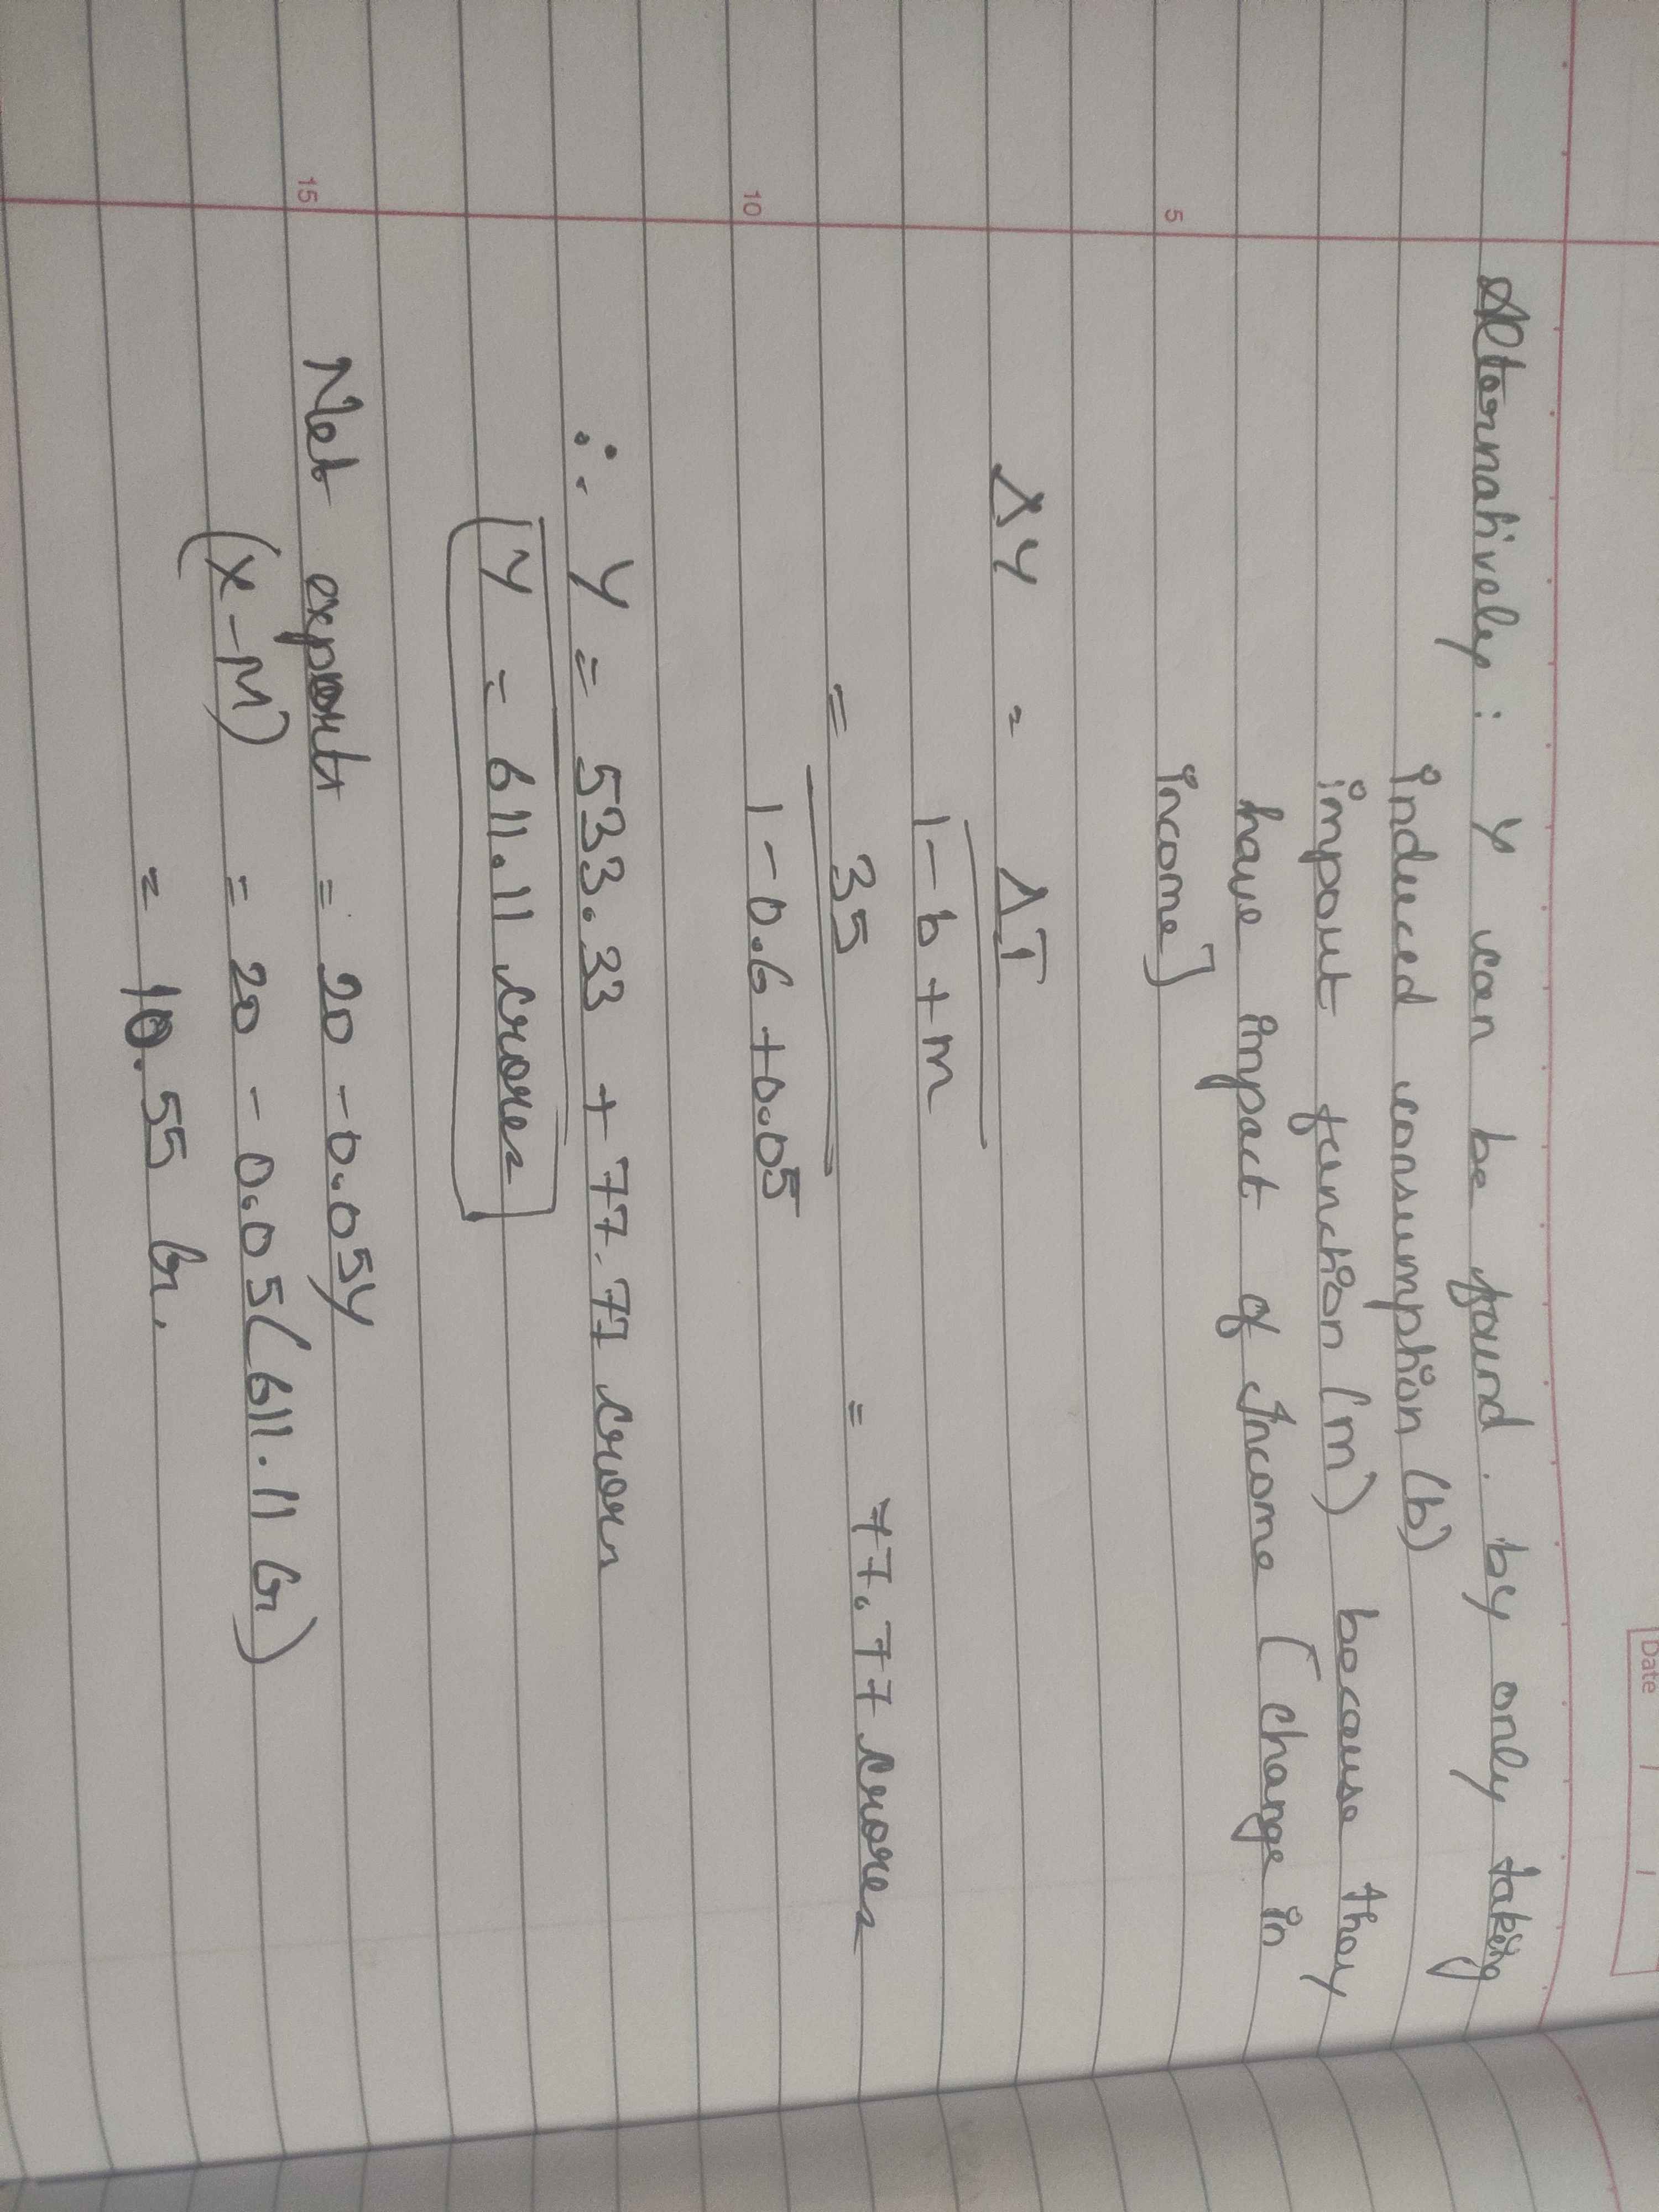 Date / /
Alternatively: Y can be found by only taking
induced consumption (b)
import function (m) because they
have impact of Income (change in
5 income]
ΔY = ΔI
1 - b + m
= 35 = 77.77 crores
10 1 - 0.6 + 0.05
∴ Y = 533.33 + 77.77 crores
Y = 611.11 crores
15 Net exports = 20 - 0.05Y
(X - M) = 20 - 0.05 (611.11 Cr)
= 10.55 Cr.